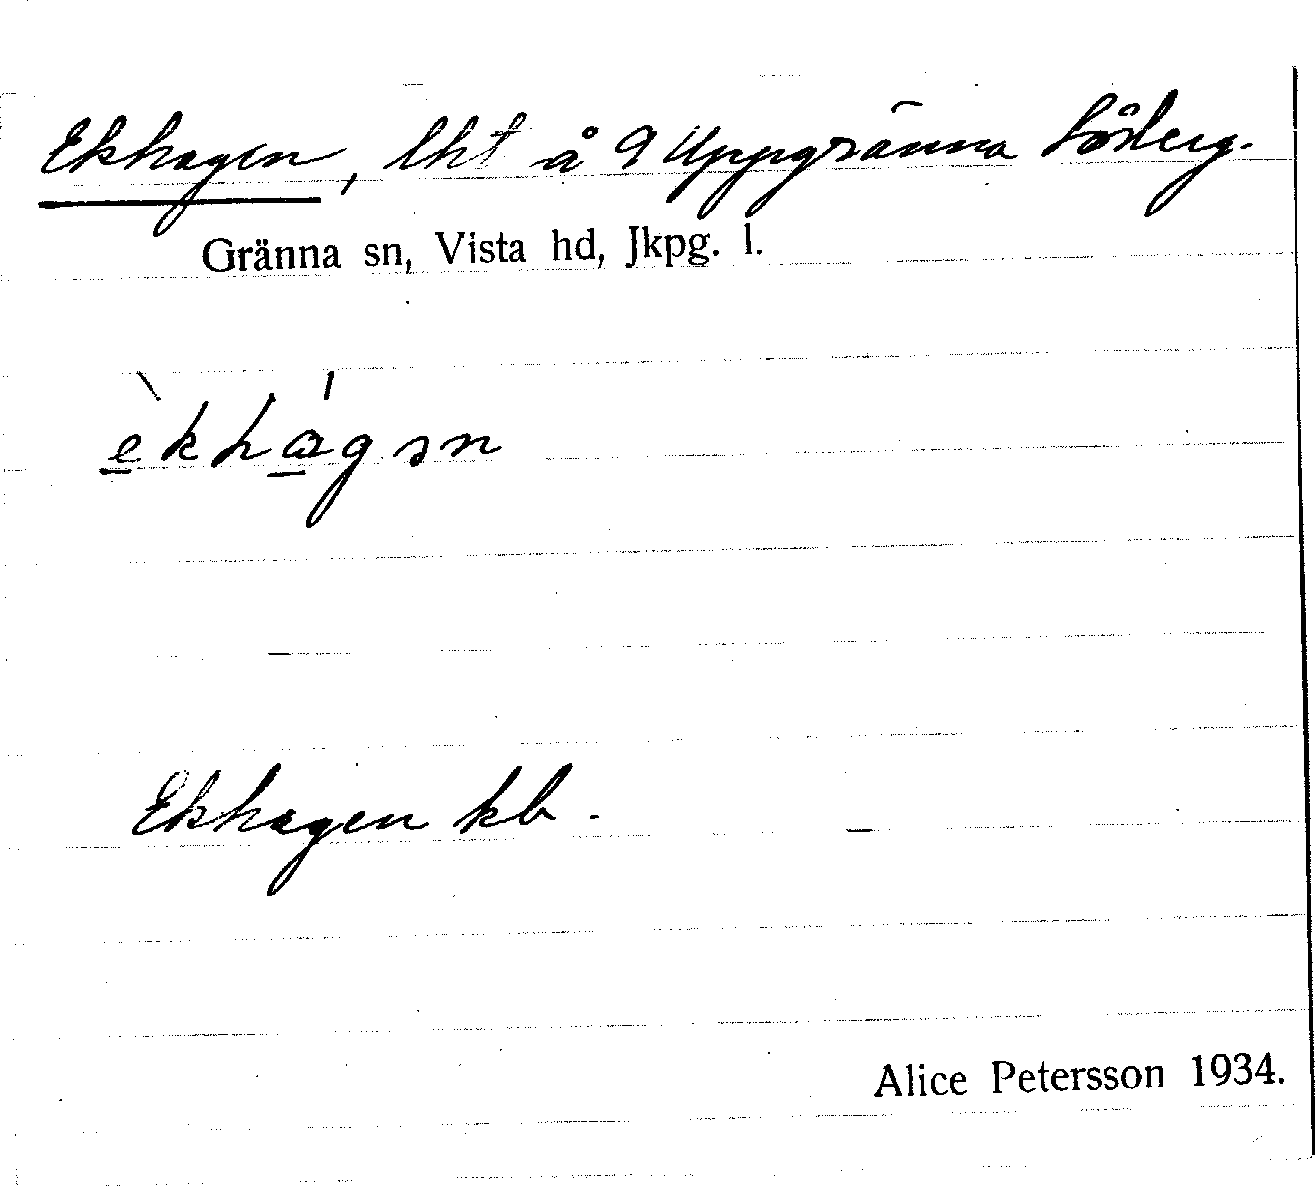 Ekhagen, lht å 9 Uppgränna Söderg.
Gränna sn, Vista hd, Jkpg. l.
Ekhagen kb.
Alice Petersson 1934.